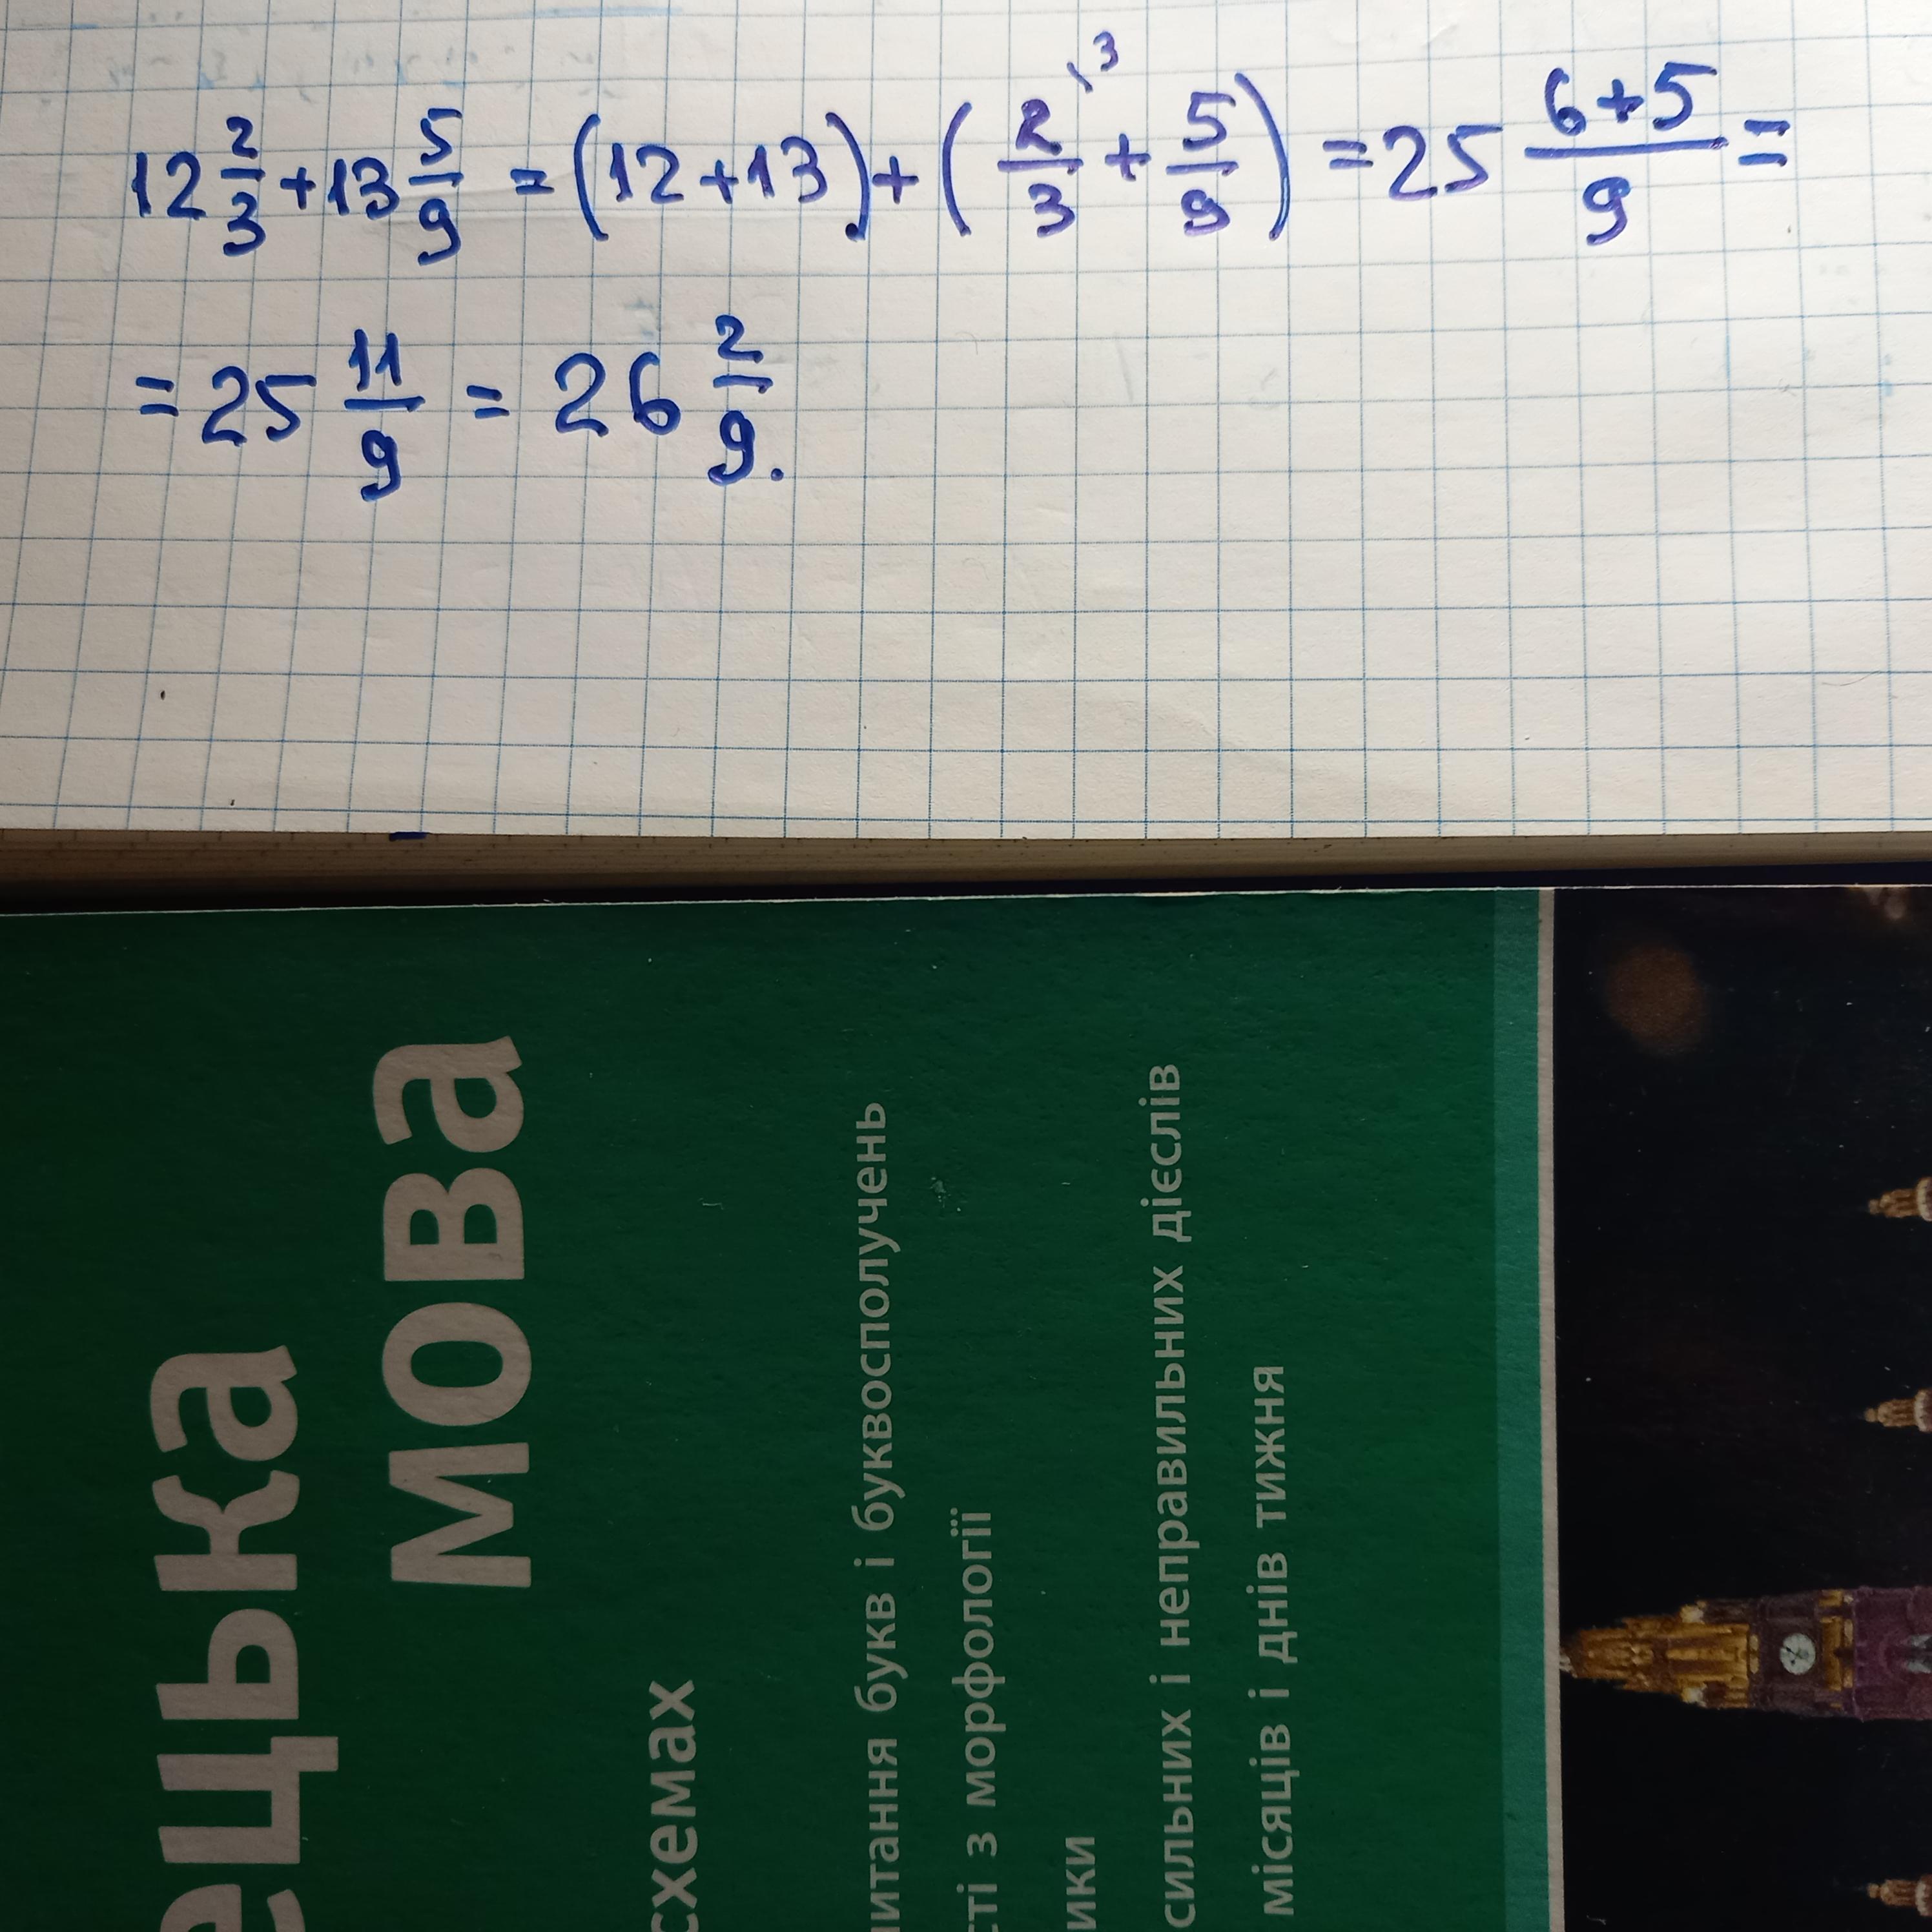 12 2/3 + 13 5/9 = (12 + 13) + (2/3 \3 + 5/9) = 25 (6+5)/9 =
= 25 11/9 = 26 2/9.
мова
схемах
букв і буквосполучень
з морфології
сильних і неправильних дієслів
місяців і днів тижня